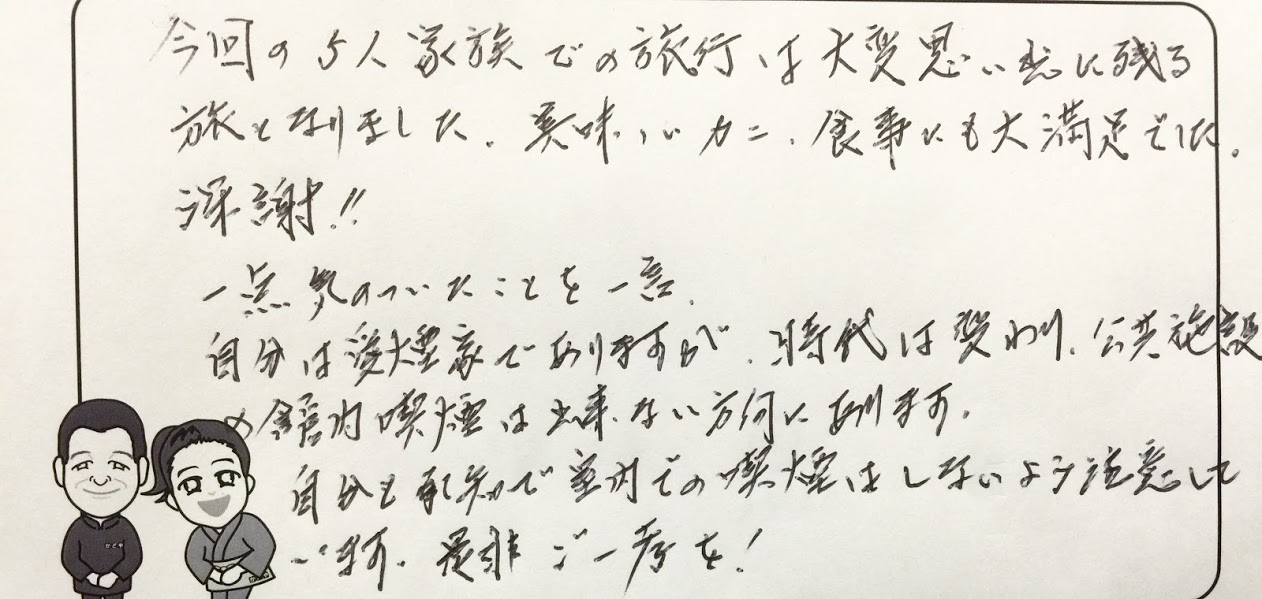 今回の5人家族での旅行は大変思い出に残る
旅となりました。美味いカニ、食事にも大満足でした。
深謝!!
一点気のついたことを一言。
自分は愛煙家でありますが、時代は変わり、公共施設
の館内喫煙は出来ない方向にあります。
自分も承知で室内での喫煙はしないよう注意して
います。是非ご一考を!
かどや